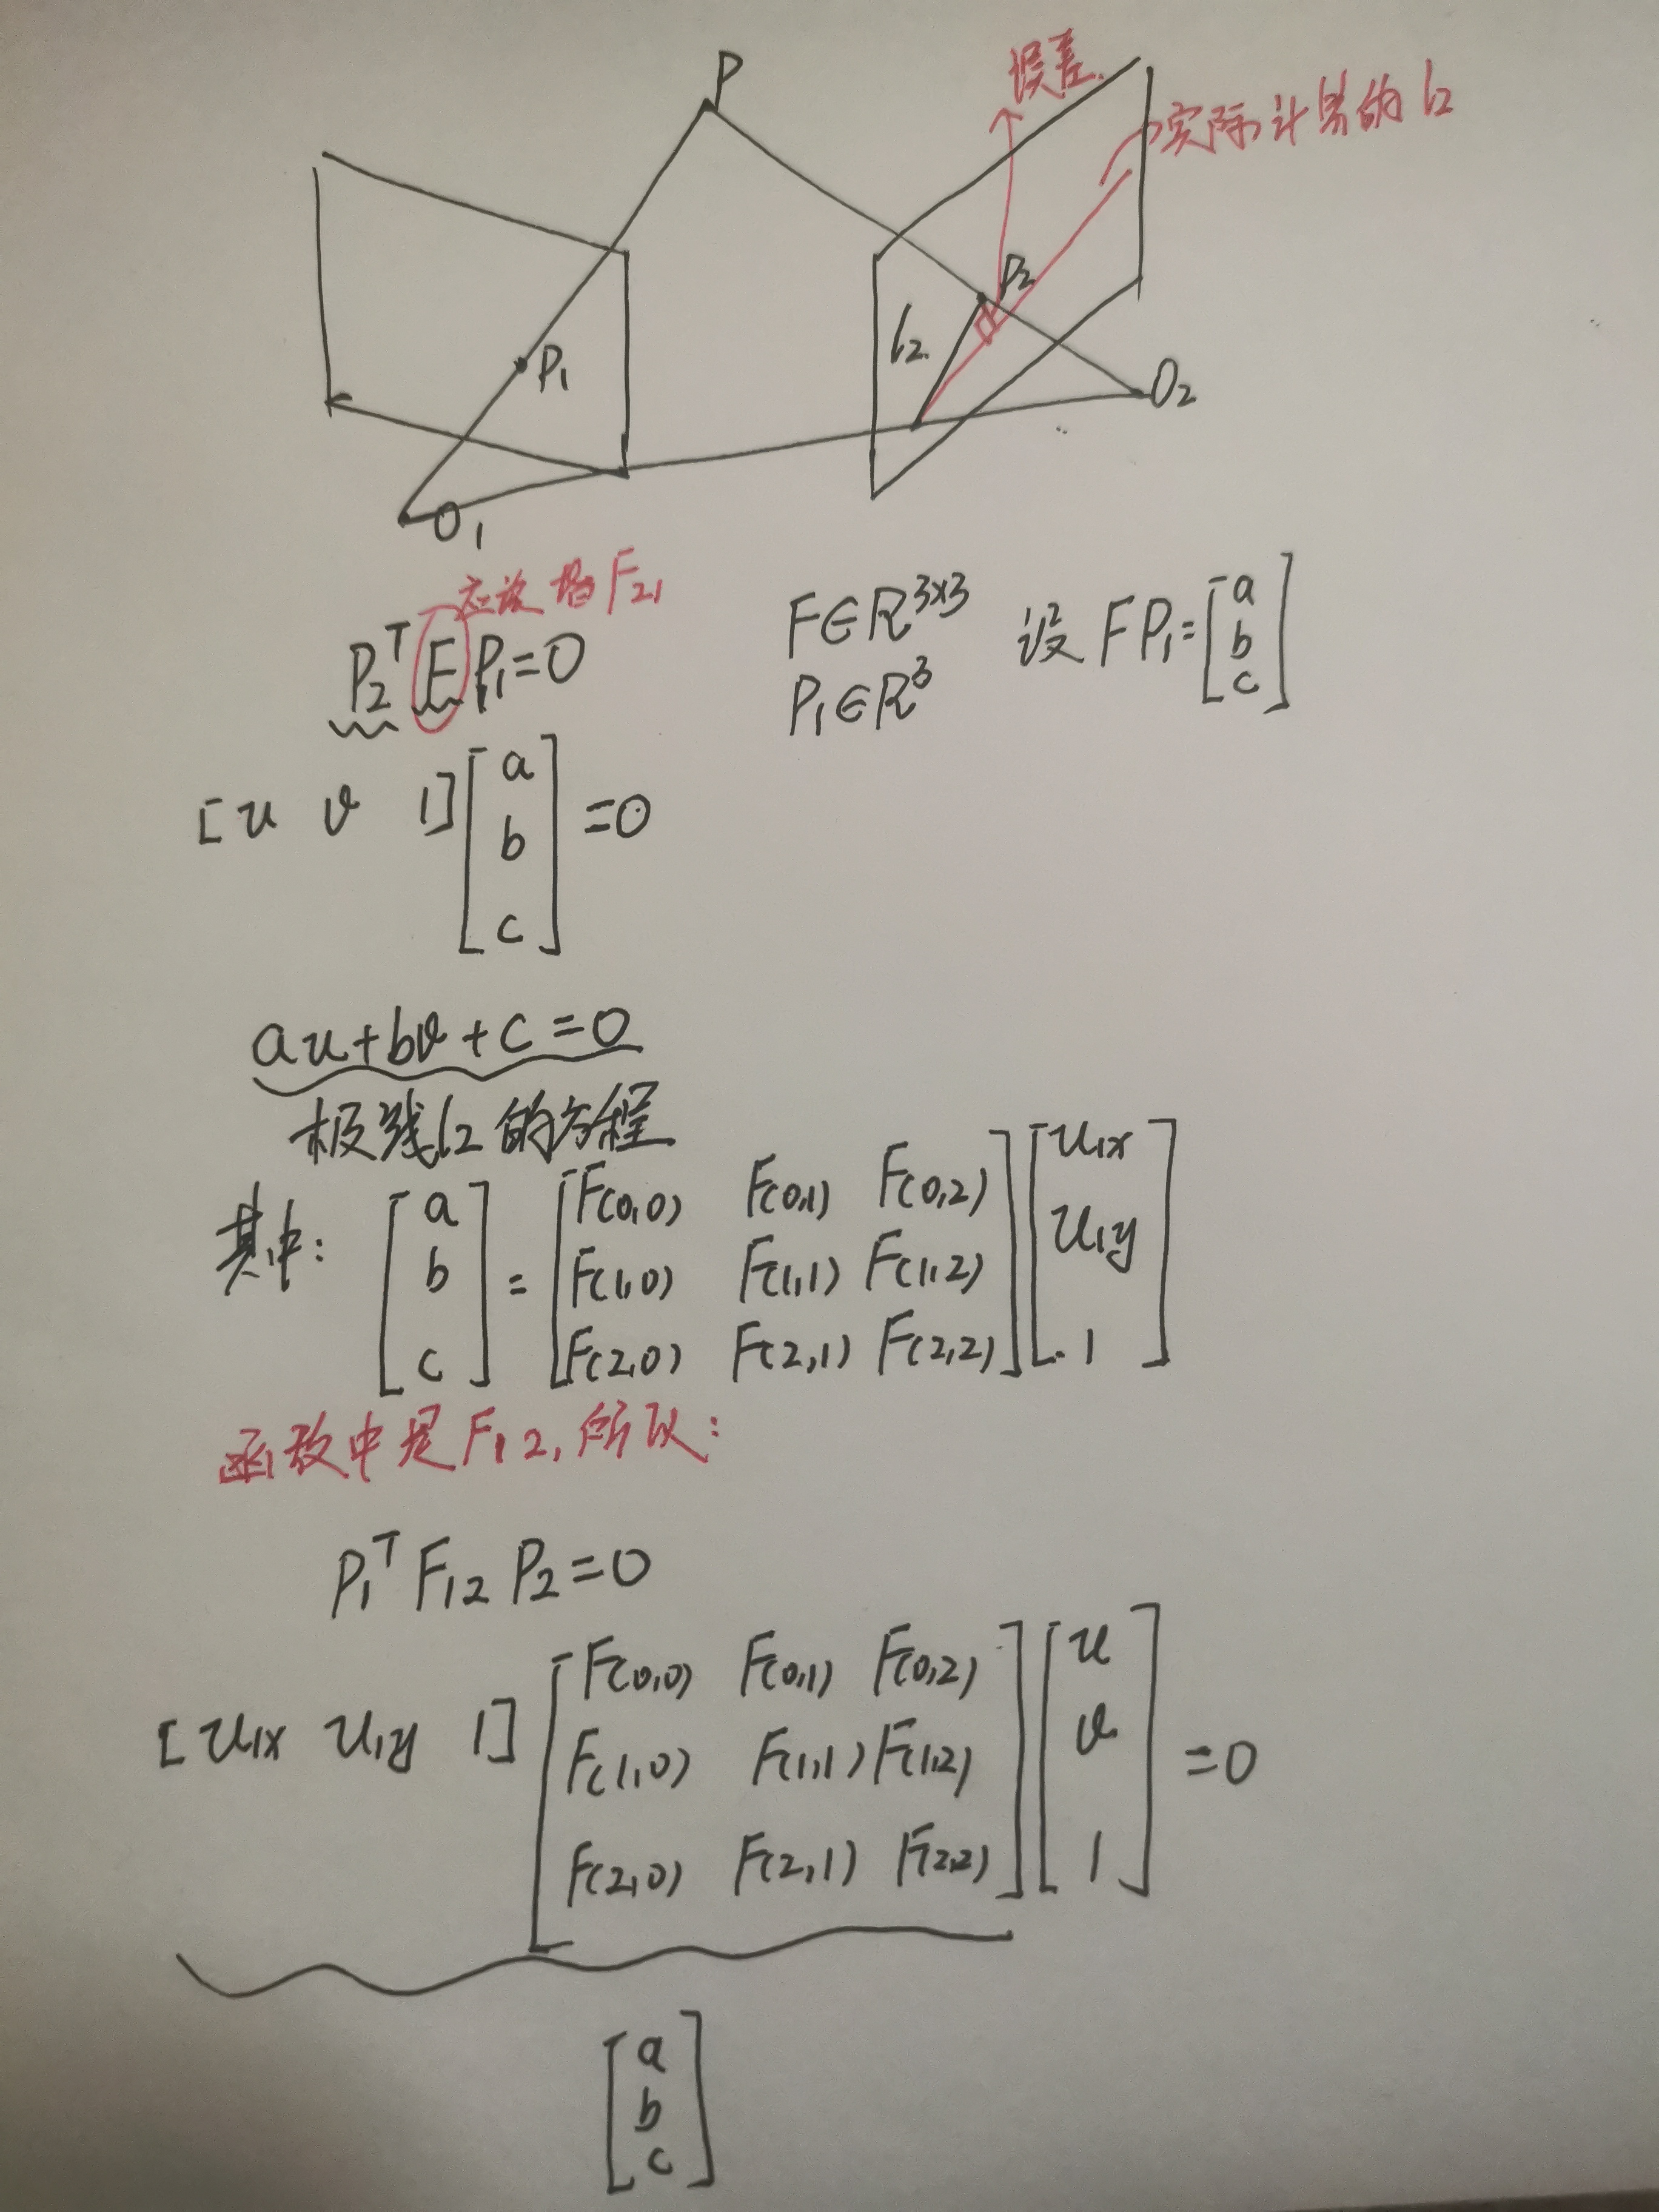 P
误差.
实际计算的 l2
P2
P1
l2.
O2
O1
应该是F21
P2^T F P1=0
F∈R^3×3 设 FP1=[a b c]
P1∈R^3
[u v 1][a b c]=0
au+bv+c=0
极线l2的方程
其中: [a b c]=[F(0,0) F(0,1) F(0,2)
F(1,0) F(1,1) F(1,2)
F(2,0) F(2,1) F(2,2)][u1x u1y 1]
函数中是F12,所以:
P1^T F12 P2=0
[u1x u1y 1][F(0,0) F(0,1) F(0,2)
F(1,0) F(1,1) F(1,2)
F(2,0) F(2,1) F(2,2)][u v 1]=0
[a b c]